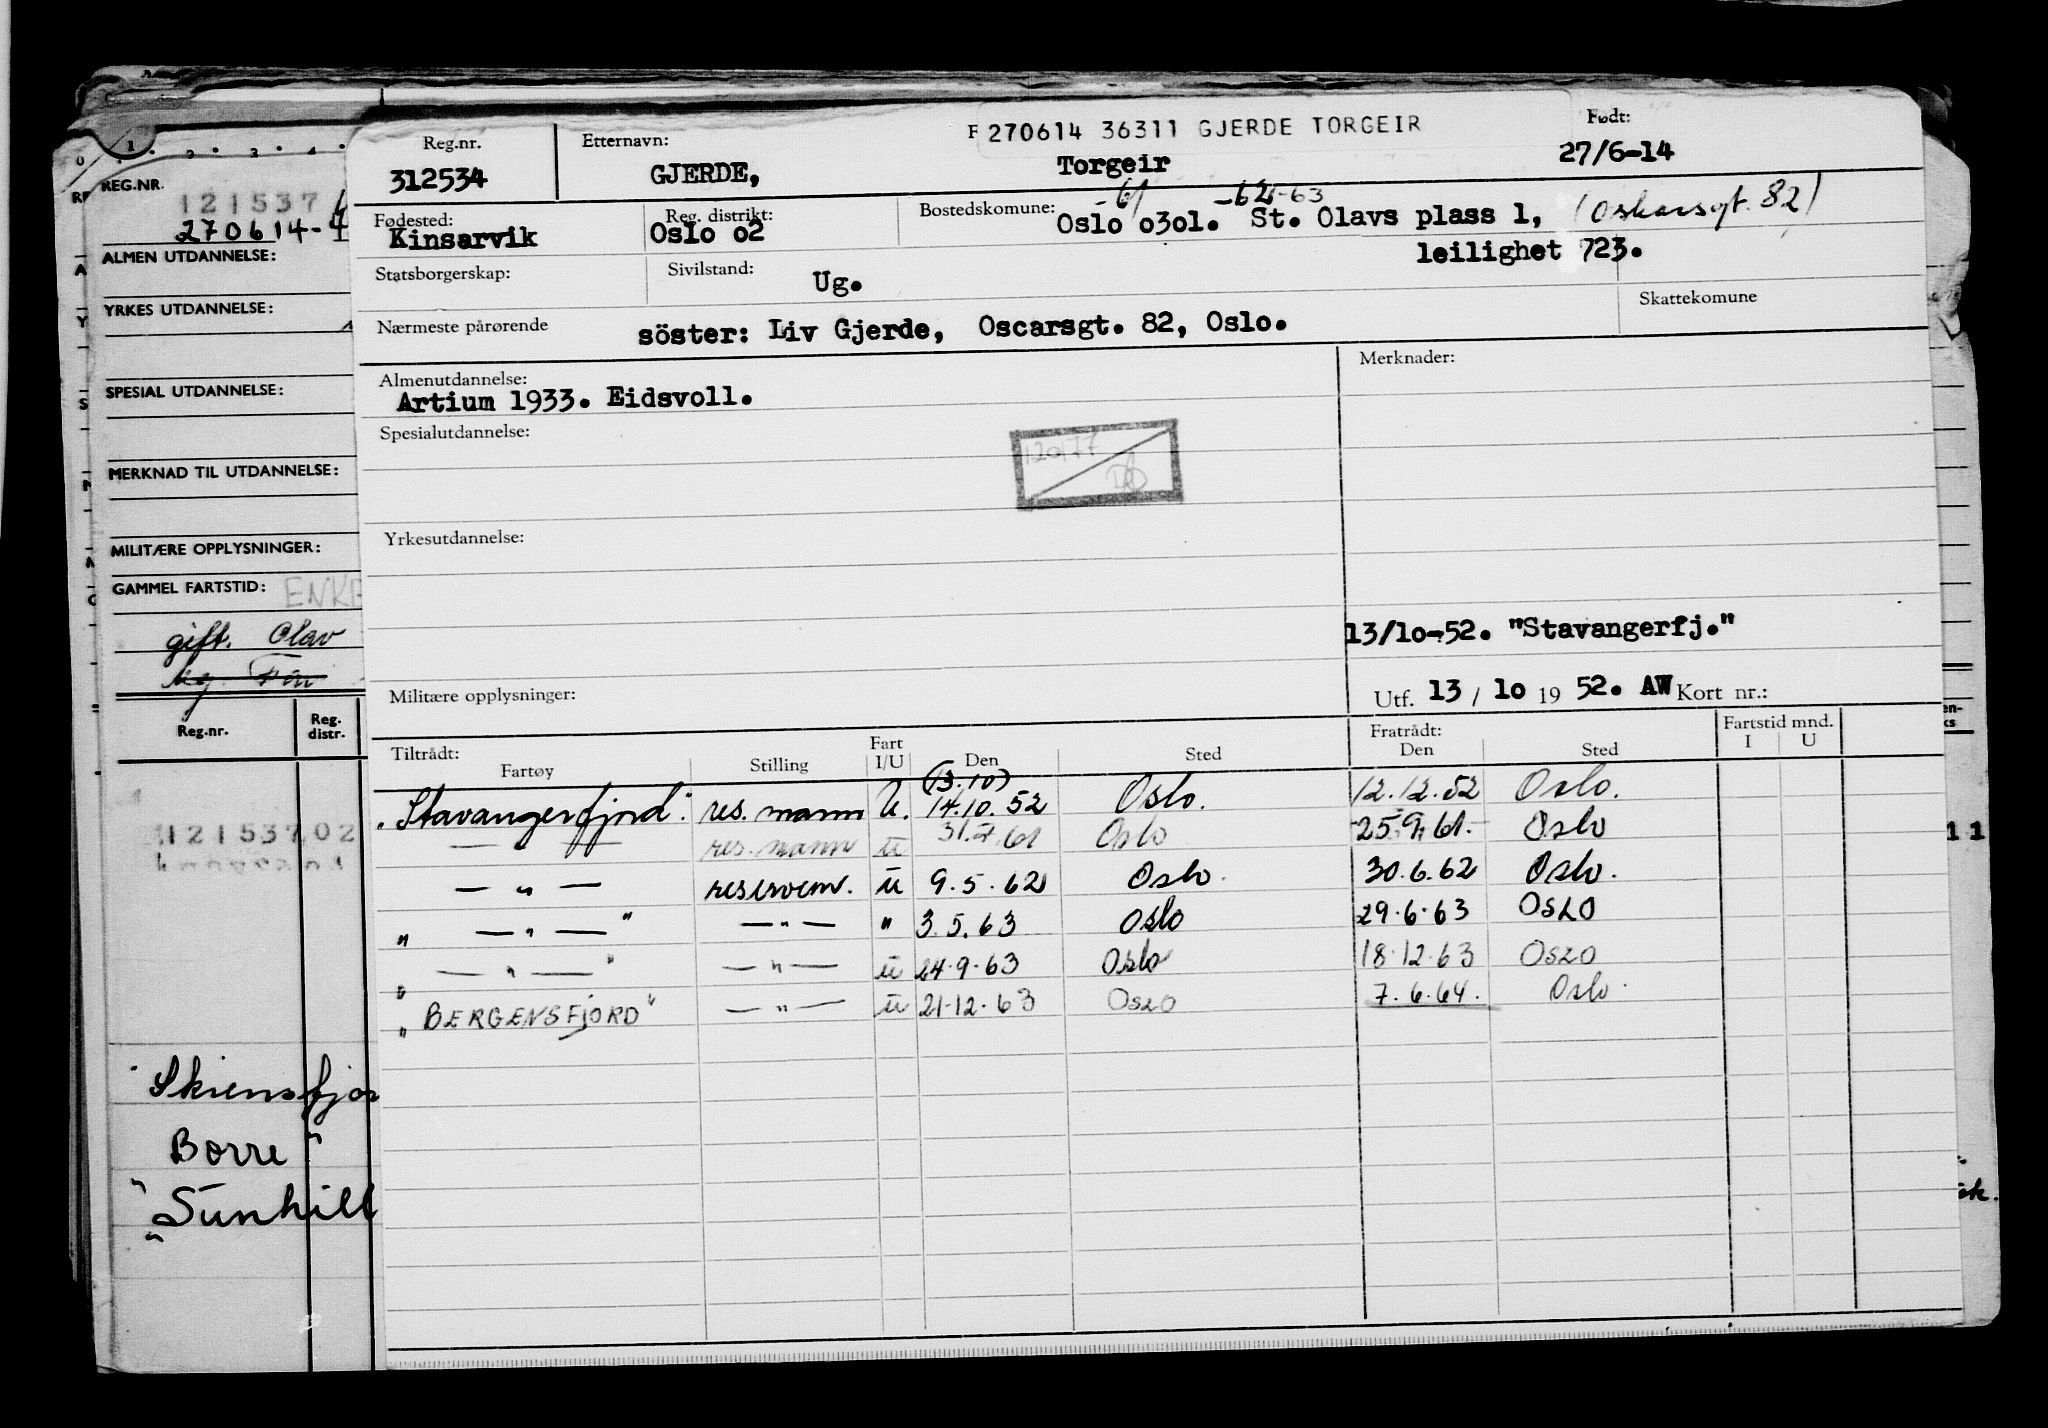 F 270614 36311 GJERDE TORGEIR
Reg.nr. Etternavn: Født:
312534 GJERDE, Torgeir 27/6-14
-61 -62 -63
Fødested: Reg. distrikt: Bostedskomune:
Kinsarvik Oslo o2 Oslo o3o1. St. Olavs plass 1, (Oskarsgt. 82)
leilighet 723.
Statsborgerskap: Sivilstand: Ug.
Skattekomune
Nærmeste pårørende söster: Liv Gjerde, Oscarsgt. 82, Oslo.
Almenutdannelse: Merknader:
Artium 1933. Eidsvoll.
Spesialutdannelse:
Yrkesutdannelse:
13/1o-52. "Stavangerfj."
Militære opplysninger: Utf. 13 / 1o 19 52. AW Kort nr.:
Tiltrådt: Fratrådt: Fartstid mnd.
Fartøy Stilling Fart I/U Den Sted Den Sted I U
(13.10)
"Stavangerfjord" res. mann U. 14.10.52 Oslo. 12.12.52 Oslo.
— " — res. mann u 31.7.61 Oslo 25.9.61. Oslo
— " — reservem. u 9.5.62 Oslo. 30.6.62 Oslo.
" — " — " — " — " 3.5.63 Oslo 29.6.63 OSLO
" — " — " — " — u 24.9.63 Oslo 18.12.63 OSLO
"BERGENSFJORD" — " — u 21.12.63 OSLO 7.6.64. Oslo.
0 1 2 3 4
REG.NR.
121537
270614-4
ALMEN UTDANNELSE:
YRKES UTDANNELSE:
SPESIAL UTDANNELSE:
MERKNAD TIL UTDANNELSE:
MILITÆRE OPPLYSNINGER:
GAMMEL FARTSTID: ENKE
gift. Olav
ug. Far
Reg.nr. Reg. distr.
121537 02
"Skiensfjor
Borre"
"Sunhill"
11